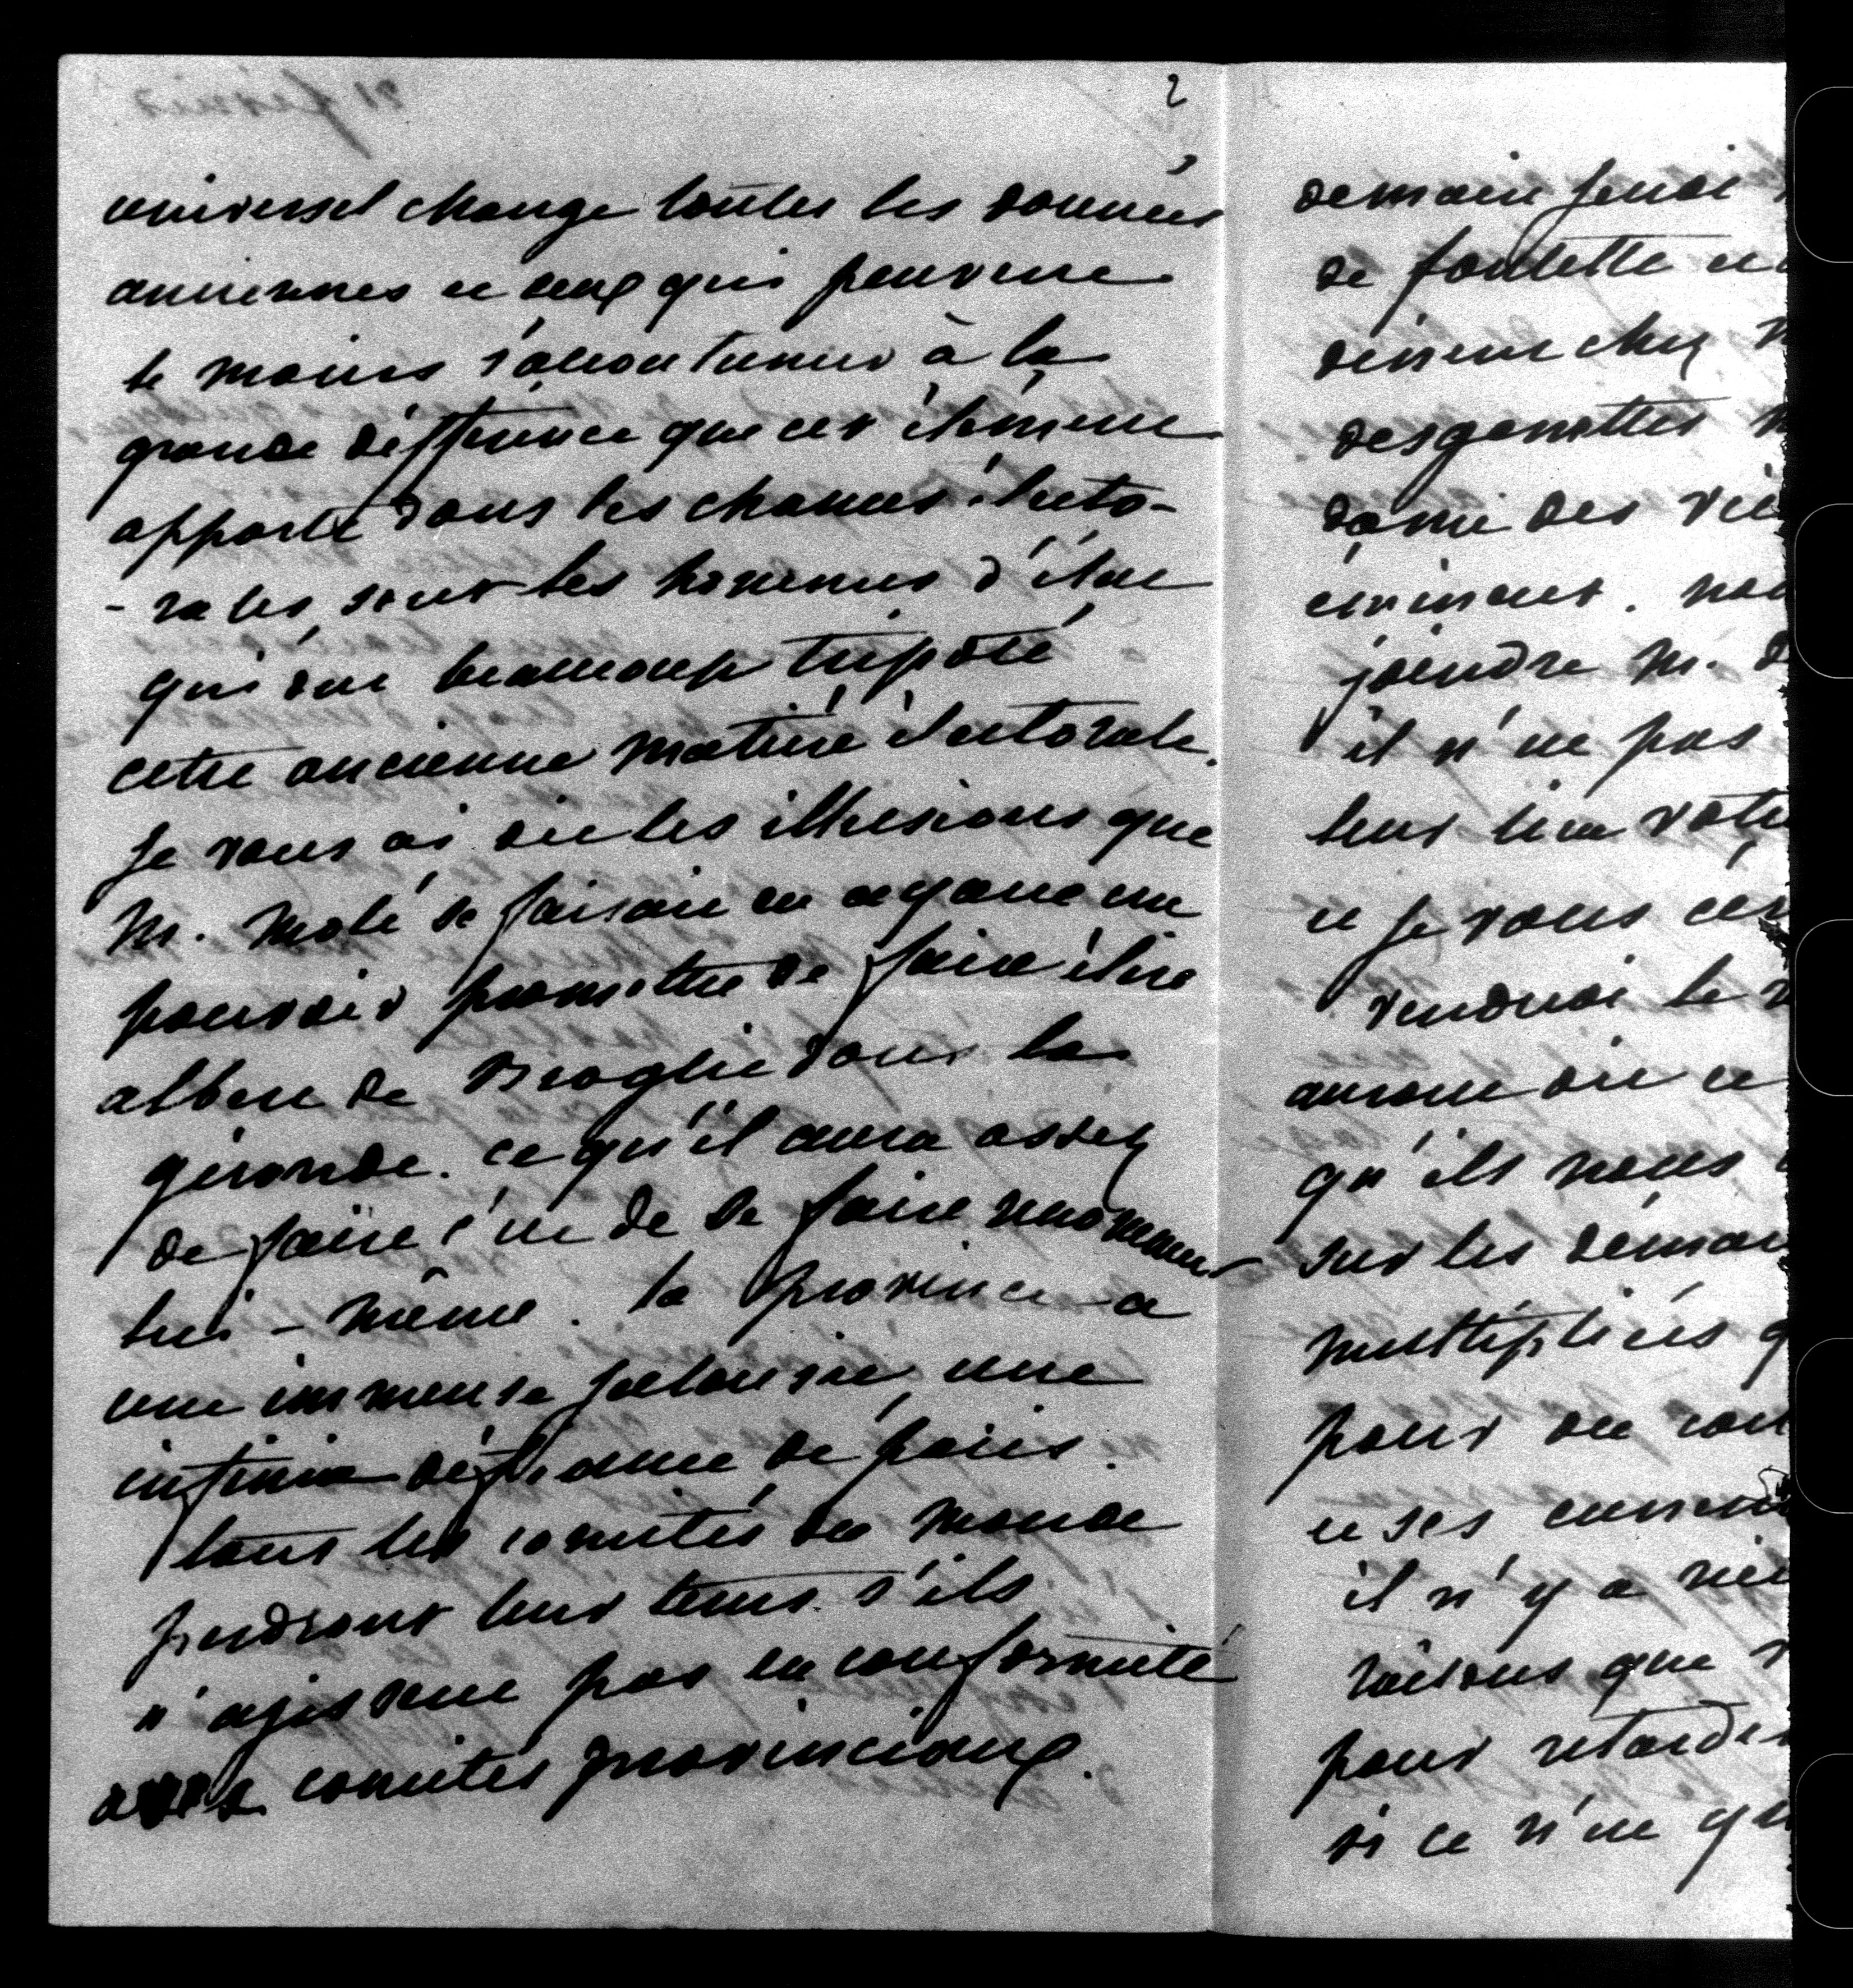 2
universel change toutes les données
anciennes et ceux qui peuvent
le moins s'accoutumer à la
grande différence que cet élément
apporte dans les chances électo-
-rales, sont les hommes d'état
qui ont beaucoup tripoté
cette ancienne matière électorale.
Je vous ai dit les illusions que
M. Molé se faisait en ayant cru
pouvoir promettre de faire élire
albert de Broglie dans la
gironde. ce qu'il aura assez
de faire c'est de se faire renommer
lui-même. la province a
une immense jalousie, une
infinie défiance de paris.
tous les comités du monde
perdront leur tems s'ils
n'agissent pas en conformité
comités provinciaux.
demain jeudi
de
dîner chez M
desgenettes
éminent. nou
joindre M. d
il n'est pas
leur lira votre
et je vous
rendrai le
auront dit et
qu'ils nous
sur les
multipliées q
pour ou con
et ses
il n'y a rien
raisons que
pour retarder
si ce n'est qu